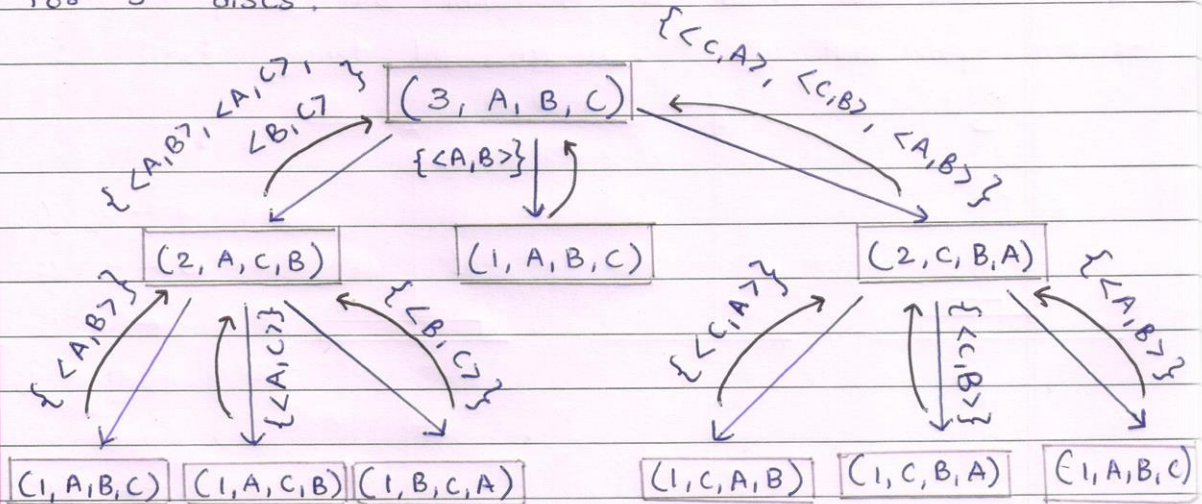 for 3 discs.
{<C,A>, <C,B>, <A,B>}
{<A,B>, <A,C>, <B,C>}
(3, A, B, C)
{<A,B>}
(2, A, C, B)
(1, A, B, C)
(2, C, B, A)
{<A,B>}
{<A,C>}
{<B,C>}
{<C,A>}
{<C,B>}
{<A,B>}
(1, A, B, C)
(1, A, C, B)
(1, B, C, A)
(1, C, A, B)
(1, C, B, A)
(1, A, B, C)